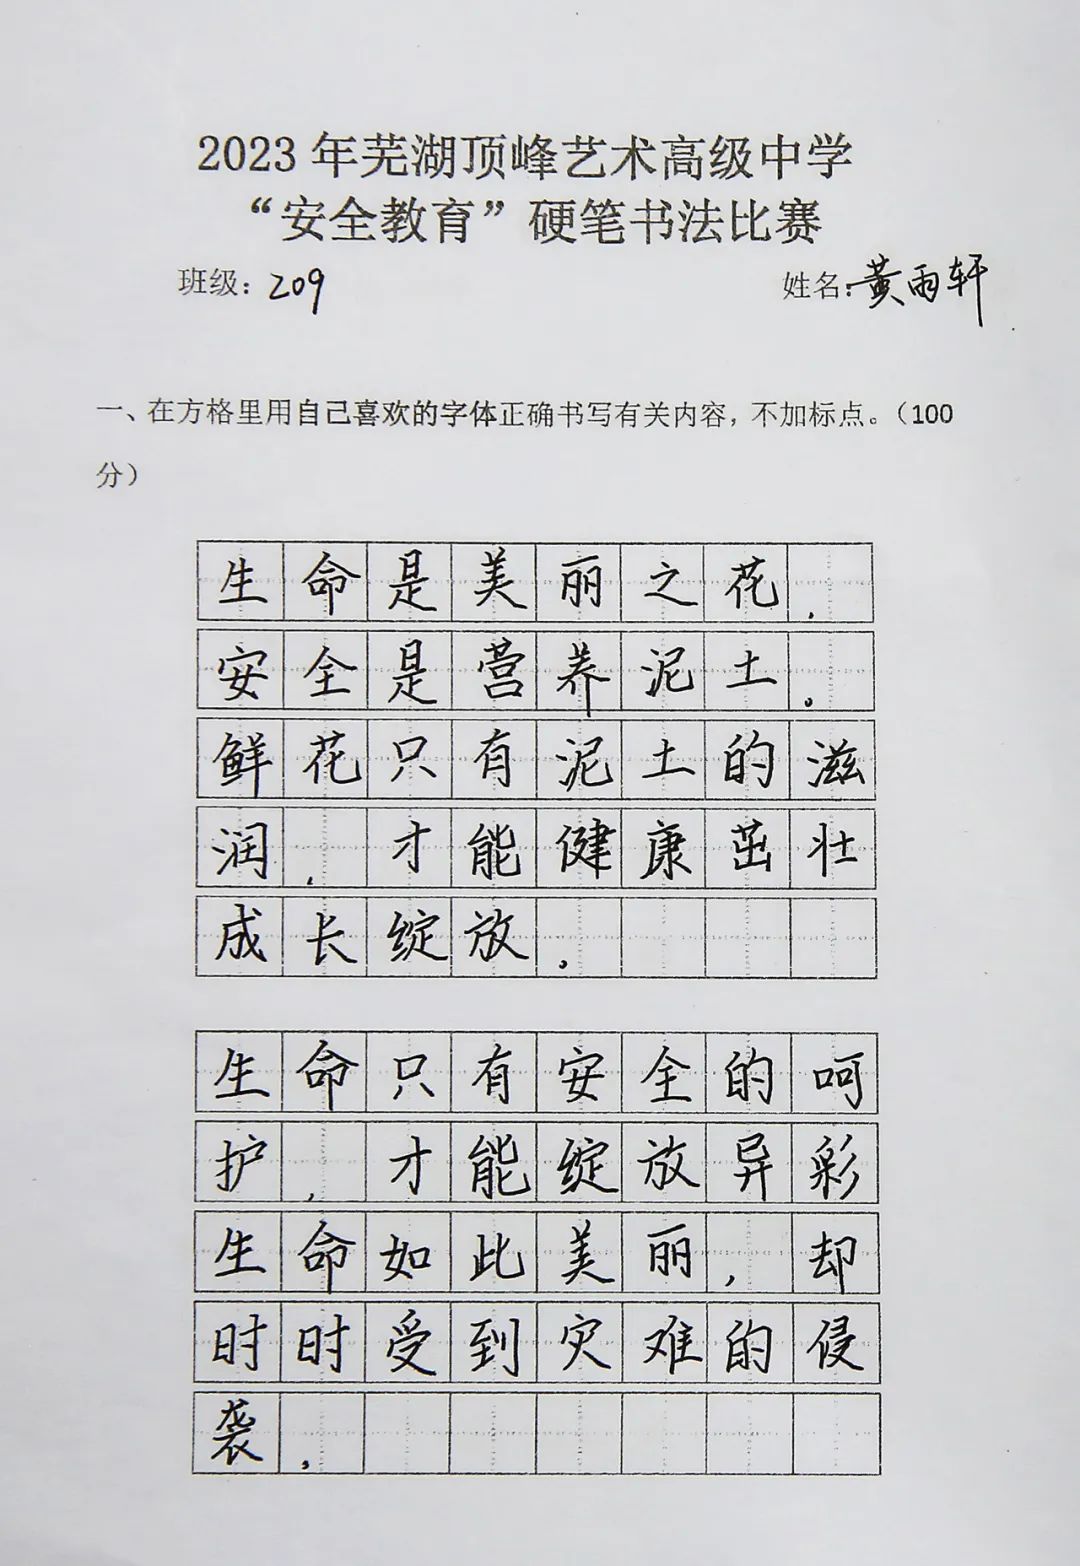 2023年芜湖顶峰艺术高级中学
“安全教育”硬笔书法比赛
班级：209 姓名：黄雨轩
一、在方格里用自己喜欢的字体正确书写有关内容，不加标点。（100
分）
生命是美丽之花，
安全是营养泥土。
鲜花只有泥土的滋
润，才能健康茁壮
成长绽放。
生命只有安全的呵
护，才能绽放异彩
生命如此美丽，却
时时受到灾难的侵
袭，